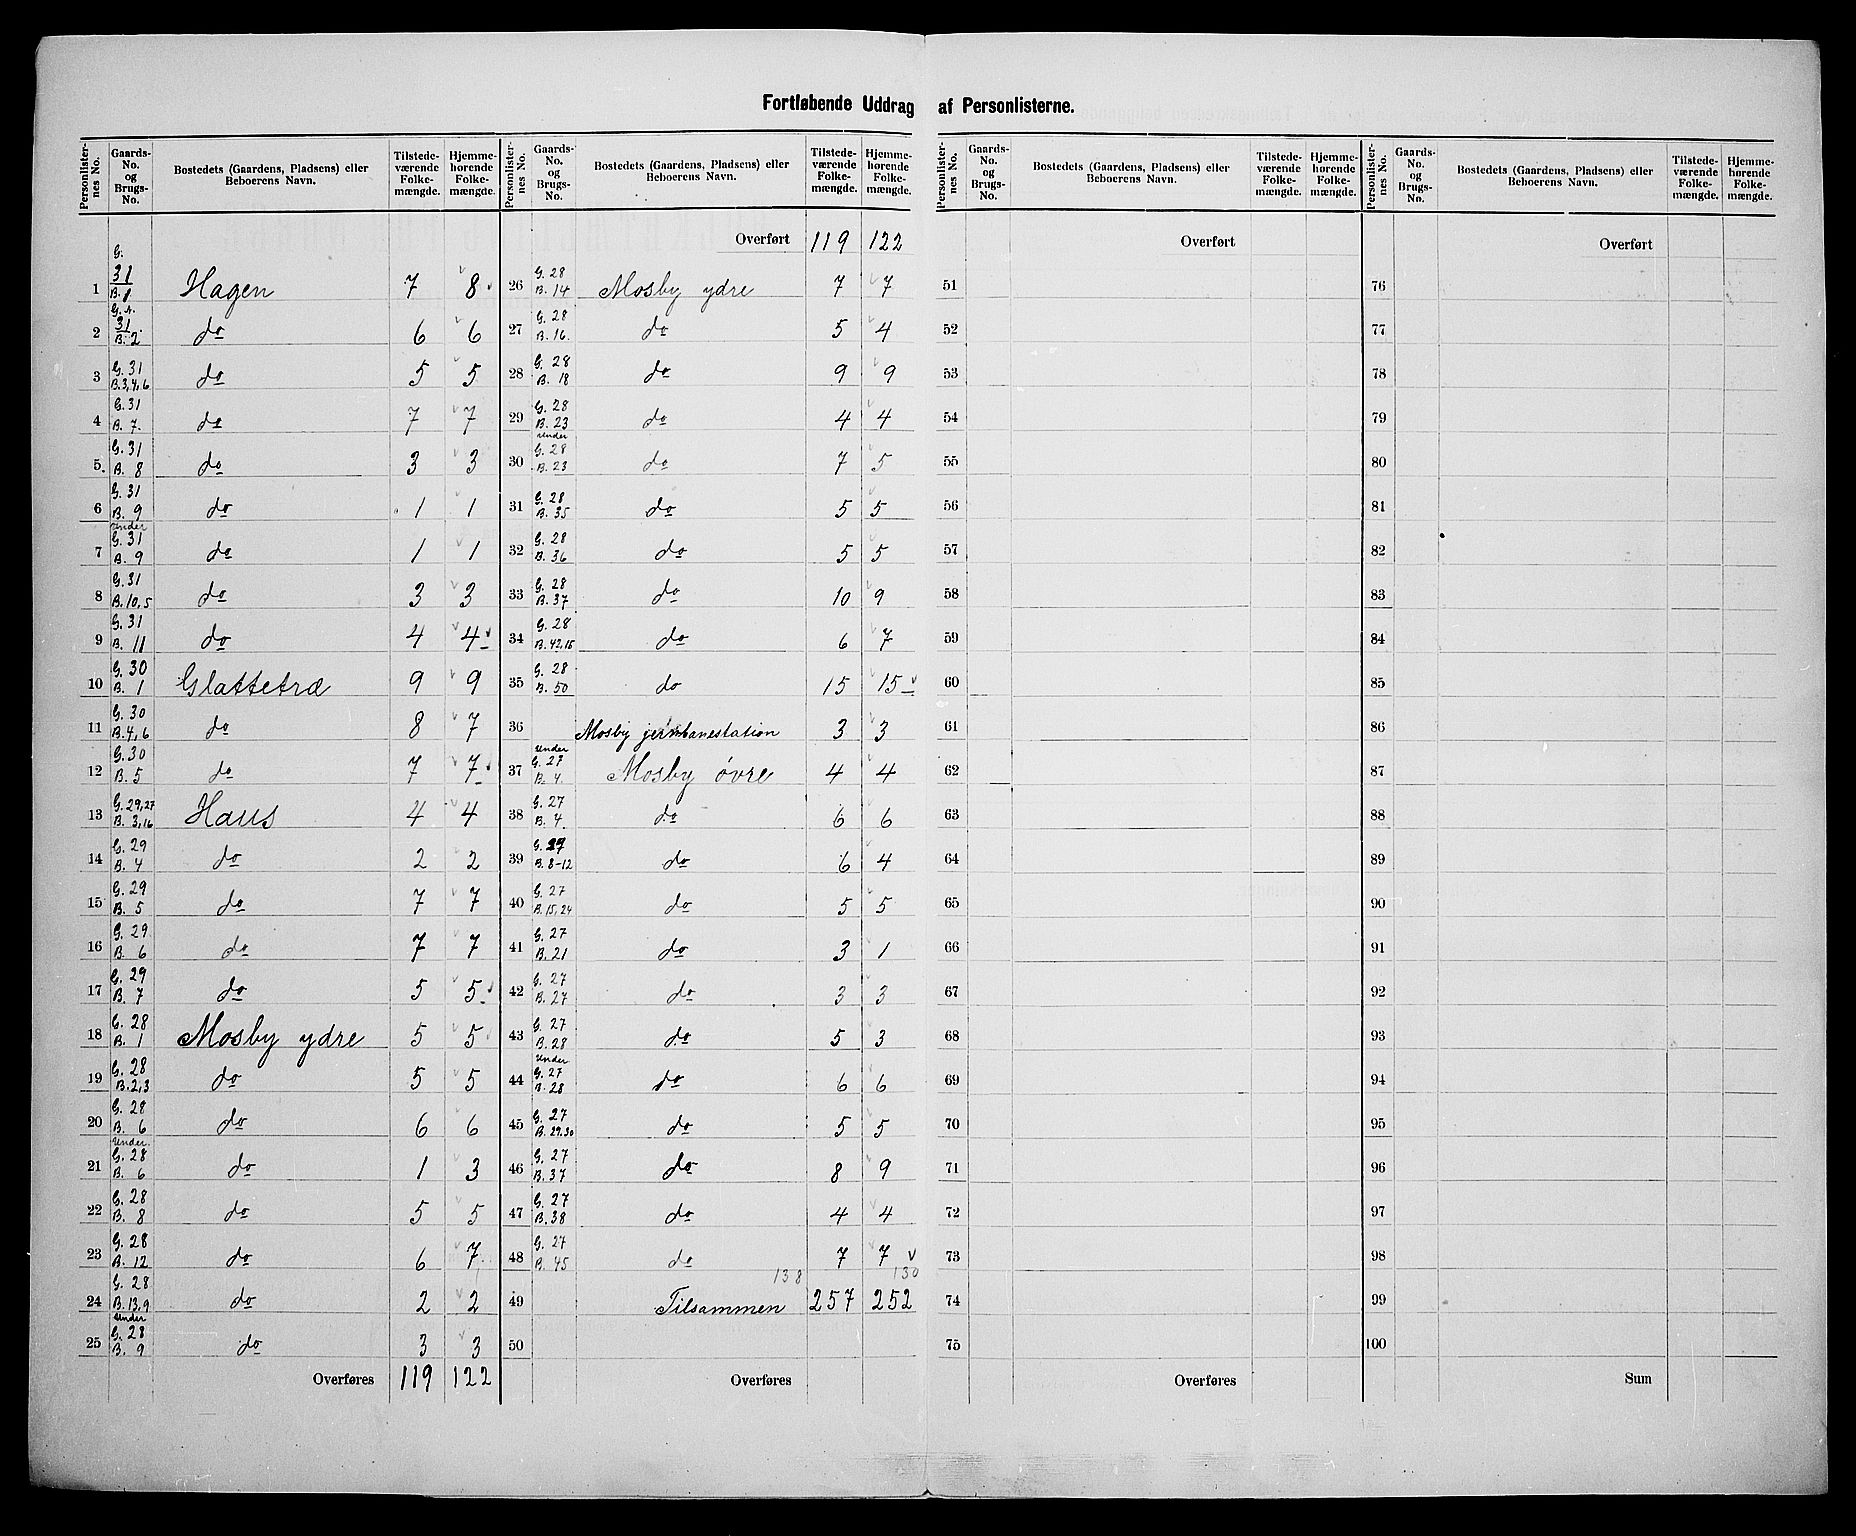 Fortløbende Uddrag af Personlisterne.
Personlister-nes No. | Gaards-No. og Brugs-No. | Bostedets (Gaardens, Pladsens) eller Beboerens Navn. | Tilstede-værende Folke-mængde. | Hjemme-hørende Folke-mængde.
1 G. 31 B. 1. Hagen 7 8
2 G. n. 31 B. 2. do 6 6
3 G. 31 B. 3, 4, 6 do 5 5
4 G. 31 B. 7. do 7 7
5. G. 31 B. 8 do 3 3
6 G. 31 B. 9 do 1 1
7 Under G. 31 B. 9 do 1 1
8 G. 31 B. 10, 5 do 3 3
9 G. 31 B. 11 do 4 4
10 G. 30 B. 1 Glattetræ 9 9
11 G. 30 B. 4, 6 do 8 7
12 G. 30 B. 5 do 7 7
13 G. 29, 27 B. 3, 16 Haus 4 4
14 G. 29 B. 4 do 2 2
15 G. 29 B. 5 do 7 7
16 G. 29 B. 6 do 7 7
17 G. 29 B. 7 do 5 5
18 G. 28 B. 1 Mosby ydre 5 5
19 G. 28 B. 2, 3 do 5 5
20 G. 28 B. 6 do 6 6
21 Under G. 28 B. 6 do 1 3
22 G. 28 B. 8 do 5 5
23 G. 28 B. 12 do 6 7
24 G. 28 B. 13, 9 do 2 2
25 Under G. 28 B. 9 do 3 3
Overføres 119 122
Personlister-nes No. | Gaards-No. og Brugs-No. | Bostedets (Gaardens, Pladsens) eller Beboerens Navn. | Tilstede-værende Folke-mængde. | Hjemme-hørende Folke-mængde.
Overført 119 122
26 G. 28 B. 14 Mosby ydre 7 7
27 G. 28 B. 16. do 5 4
28 G. 28 B. 18 do 9 9
29 G. 28 B. 23 do 4 4
30 Under G. 28 B. 23 do 7 5
31 G. 28 B. 35 do 5 5
32 G. 28 B. 36 do 5 5
33 G. 28 B. 37 do 10 9
34 G. 28 B. 42, 15 do 6 7
35 G. 28 B. 50 do 15 15
36 Mosby jernbanestation 3 3
37 Under G. 27 B. 4. Mosby øvre 4 4
38 G. 27 B. 4 do 6 6
39 G. 27 B. 8-12 do 6 4
40 G. 27 B. 15, 24 do 5 5
41 G. 27 B. 21 do 3 1
42 G. 27 B. 27 do 3 3
43 G. 27 B. 28 do 5 3
44 Under G. 27 B. 28 do 6 6
45 G. 27 B. 29, 30 do 5 5
46 G. 27 B. 37 do 8 9
47 G. 27 B. 38 do 4 4
48 G. 27 B. 45 do 7 7
138 130
49 Tilsammen 257 252
50
Overføres
Personlister-nes No. | Gaards-No. og Brugs-No. | Bostedets (Gaardens, Pladsens) eller Beboerens Navn. | Tilstede-værende Folke-mængde. | Hjemme-hørende Folke-mængde.
Overført
51
52
53
54
55
56
57
58
59
60
61
62
63
64
65
66
67
68
69
70
71
72
73
74
75
Overføres
Personlister-nes No. | Gaards-No. og Brugs-No. | Bostedets (Gaardens, Pladsens) eller Beboerens Navn. | Tilstede-værende Folke-mængde. | Hjemme-hørende Folke-mængde.
Overført
76
77
78
79
80
81
82
83
84
85
86
87
88
89
90
91
92
93
94
95
96
97
98
99
100
Sum